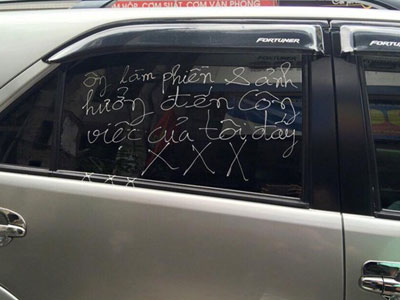 HỘP, CƠM SUẤT, CƠM VĂN PHÒNG
FORTUNER
FORTUNER
ôg làm phiền & ảnh
hưởng đến côn
việc của tôi đấy
X X X
x x x